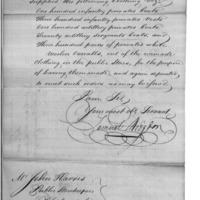 supplied the following clothing
One hundred infantry privates Coats
Three hundred infantry privates
One hundred artillery privates Coats
Twenty artillery sergeants coats, and
three hundred pairs of privates white
woolen overalls, out of the
clothing in the public Store, for the purpose
of having them made, and again deposited
to meet such orders as may be
I am Sir
Your most ob Servant
Samuel
Mr John Harris
Public Storekeeper